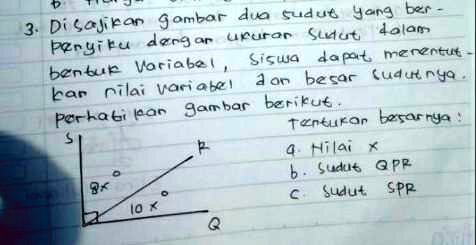 3. Disajikan gambar dua sudut yang ber-
penyiku dengan ukuran sudut dalam
bentuk variabel, siswa dapat menentut-
kan nilai variabel dan besar sudutnya.
perhatikan gambar berikut.
Tentukan besarnya:
S
R
a. Nilai x
8x°
b. Sudut QPR
10x°
c. Sudut SPR
Q